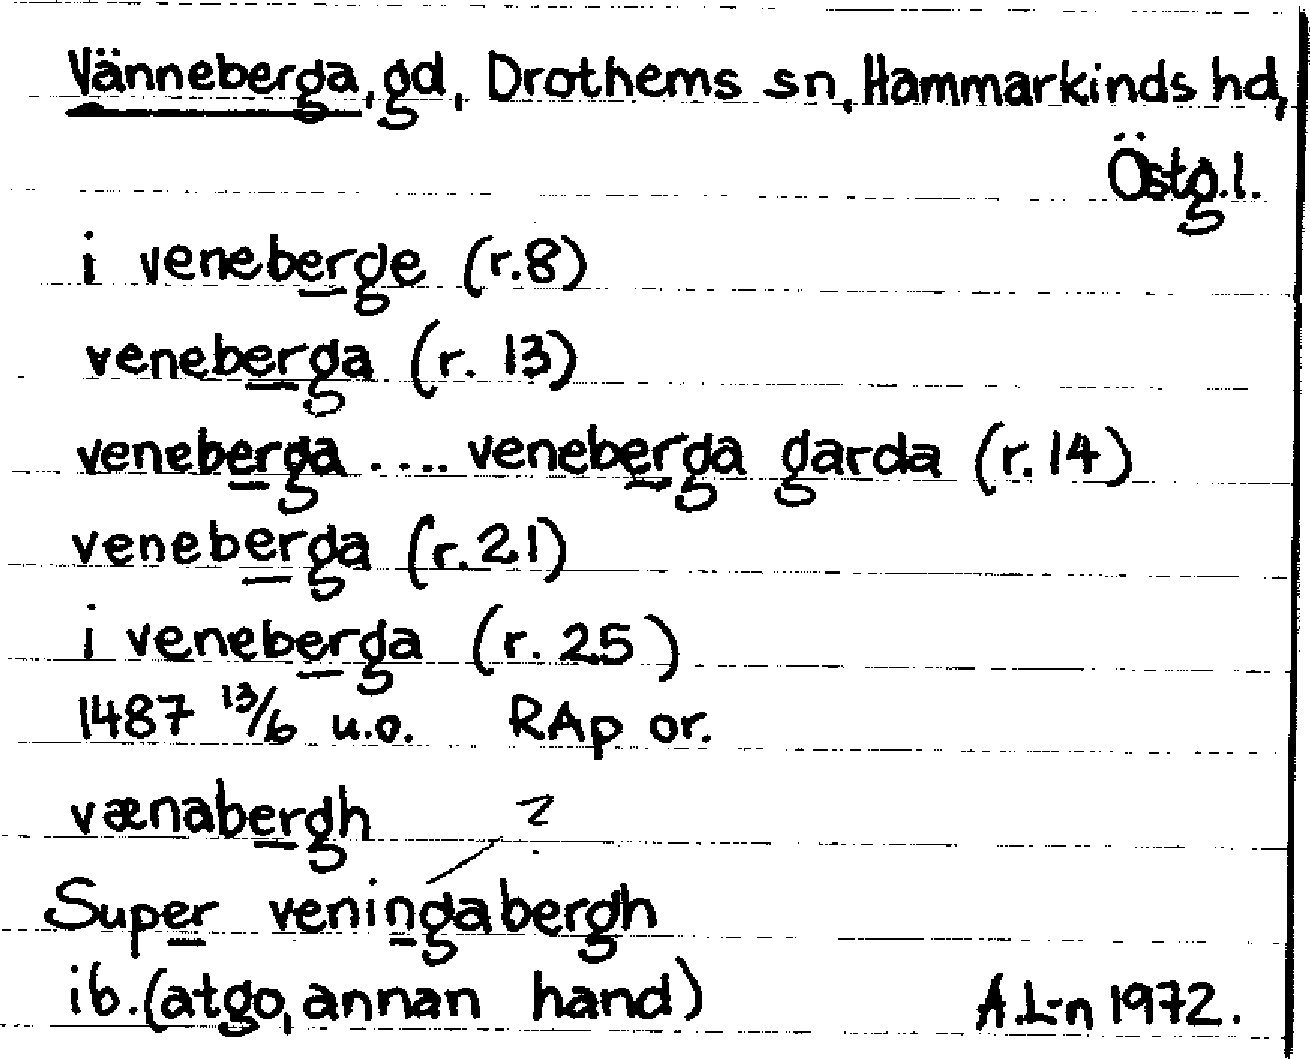 Vänneberga, gd, Drothems sn, Hammarkinds hd,
Östg.l.
i veneberge (r.8)
veneberga (r. 13)
veneberga .... veneberga garda (r. 14)
veneberga (r. 21)
i veneberga (r. 25)
1487 13/6 u.o. RAp or.
vænabergh ?
Super veningabergh
ib. (atgo, annan hand) A.L-n 1972.